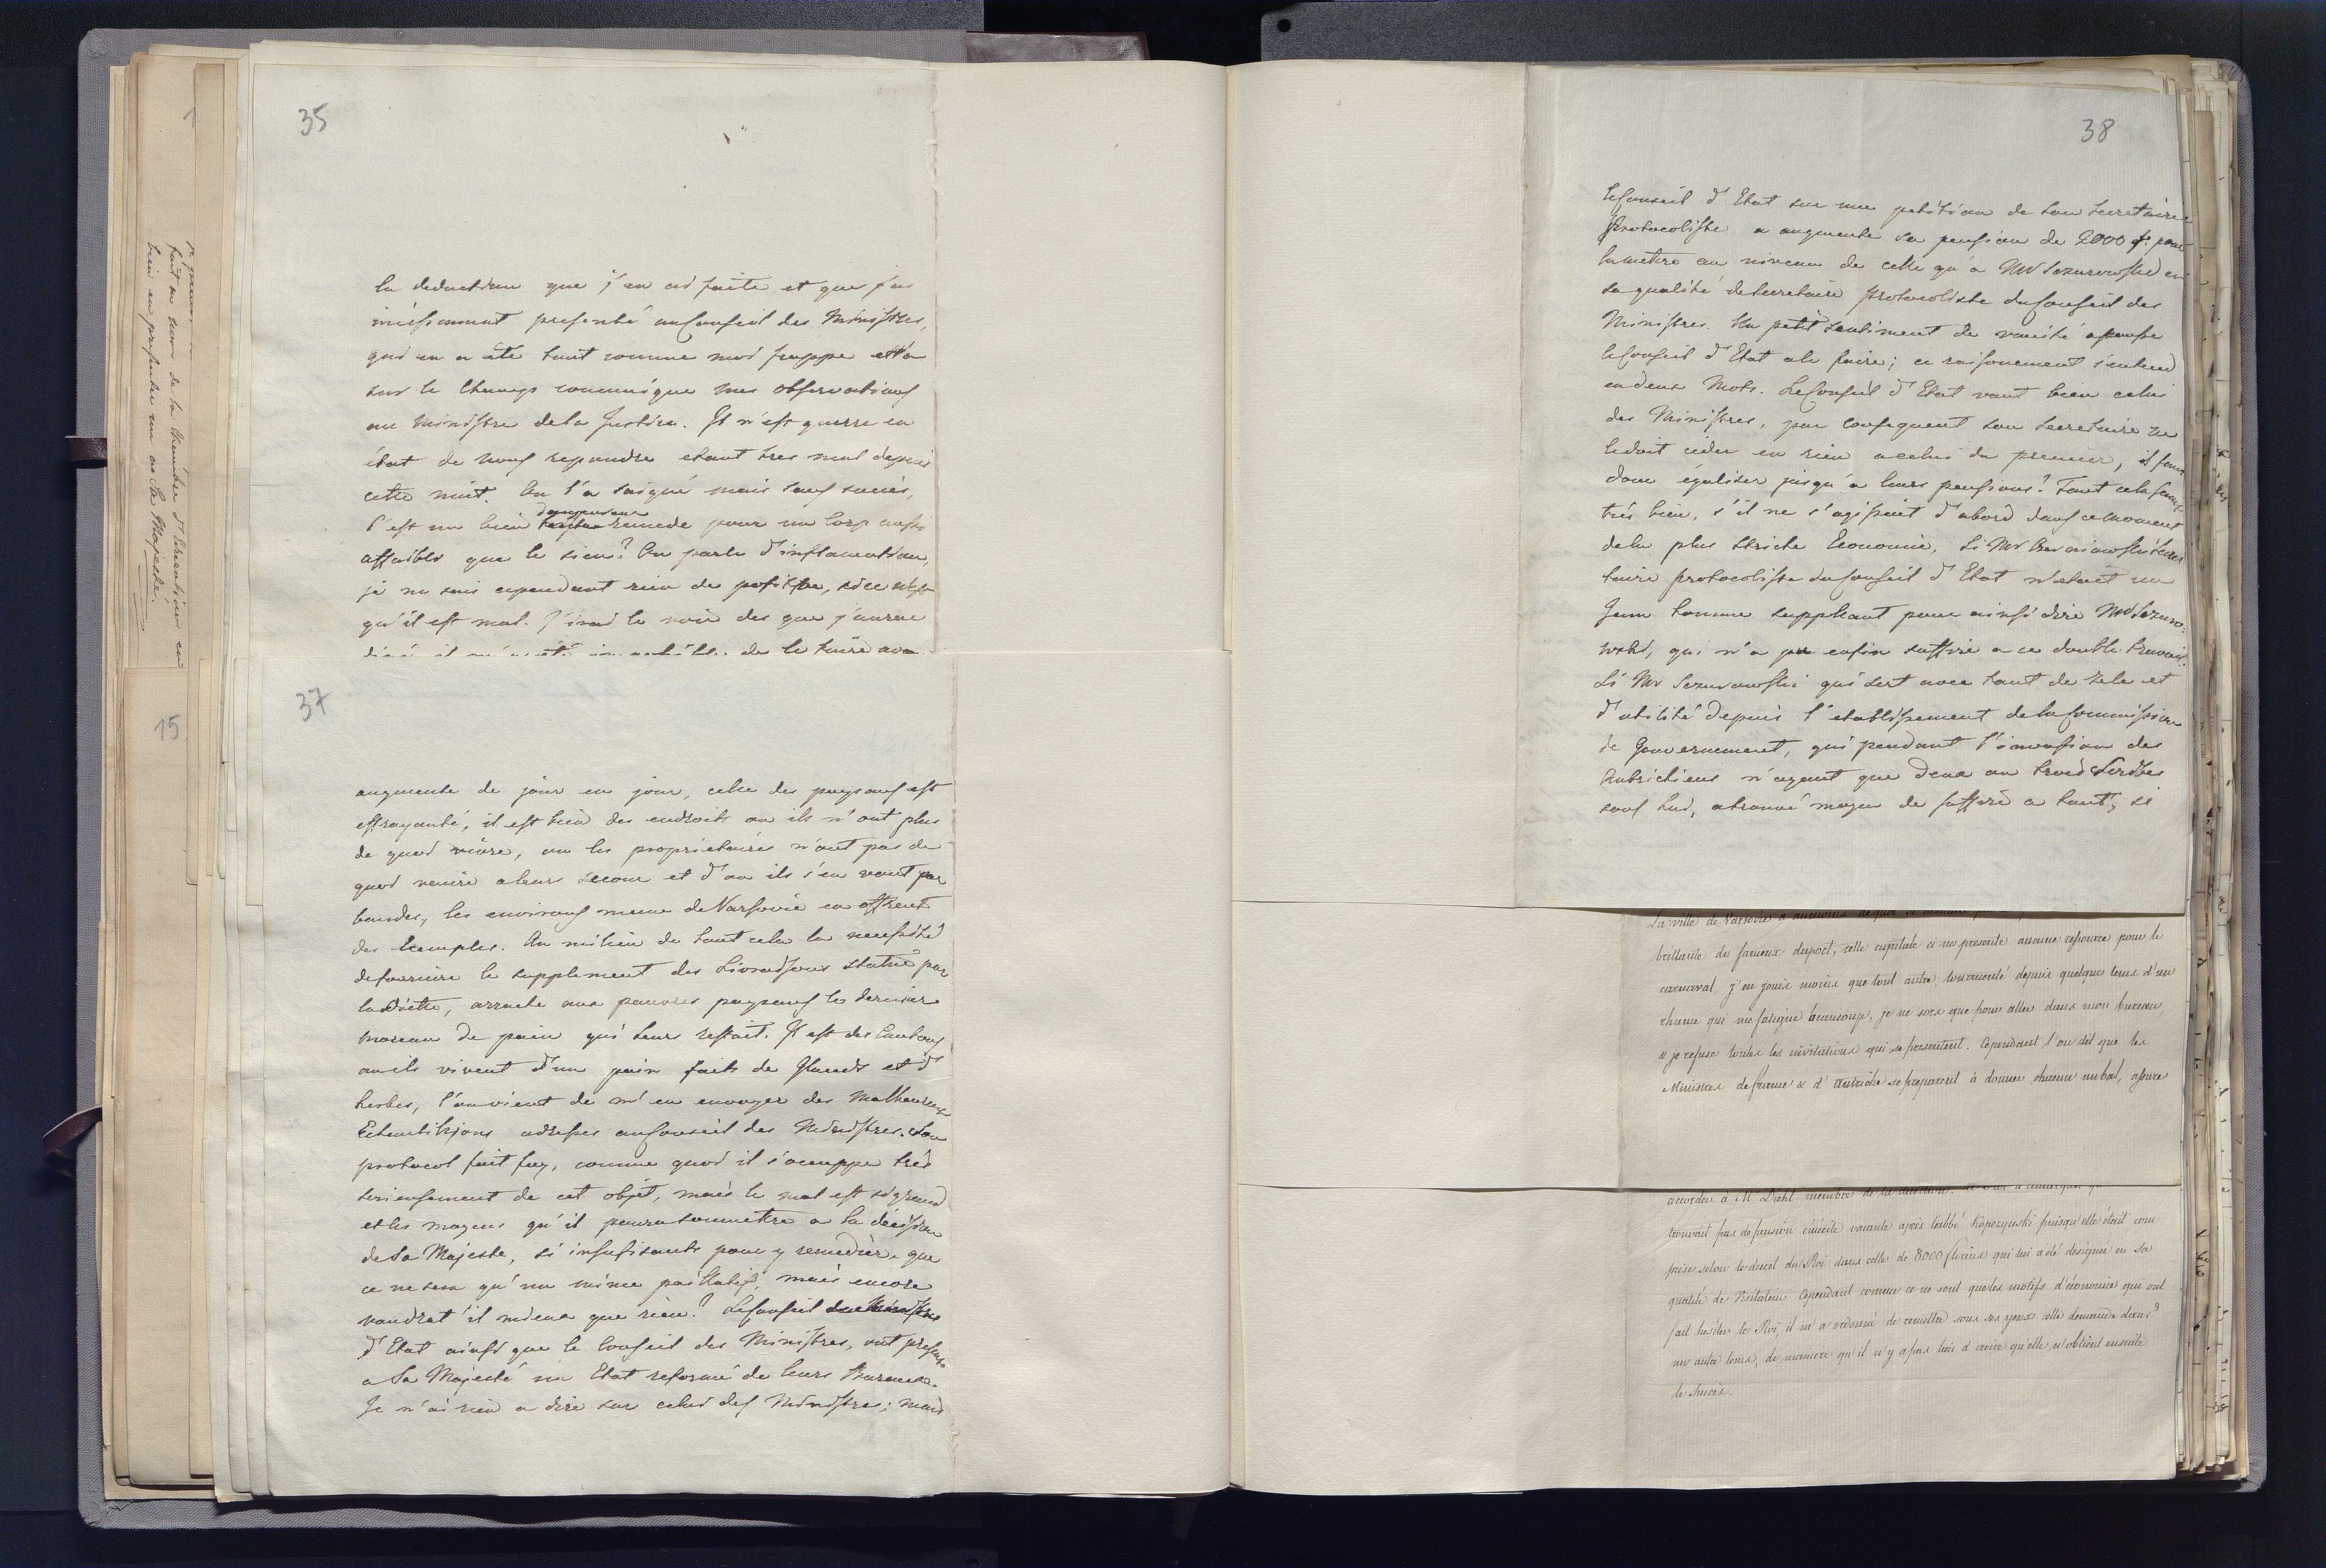 1
de la Chambre d'Education en
fait au nom
bien en presenter un a Sa Majesté.
15
35
la deduction que j'en ai faite, et que j'ai
incessamment presenté au Conseil des Ministres,
qui en a été tout comme moi frappé et a
sur le Champ comunique mes observations
au Ministre de la Justice. Il n'est guerre en
état de nous repondre etant tres mal depuis
cette nuit. On l'a saigné mais sans succès,
dangereux
C'est un bien remede pour un Corp aussi
affaibli que le sien? On parle d'inflamation,
je ne sais cependant rien de positive, si ce n'est
qu'il est mal. J'irai le voir des que j'aurai
il m'a été de le faire
37
augmente de jour en jour, celle des paysans est
effrayante, il est bien des endroits ou ils n'ont plus
de quoi vivre, ou les proprietaires n'ont pas de
quoi venire a leur secour et d'ou ils s'en vont par
bandes, les environs meme de Varsovie en offrent
des Exemples. Au milieu de tout cela la necessité
de fournire le supplement des Livraisons statué par
la Diette, arrache aux pauvres paysans le dernier
morceau de pain qui leur restait. Il est des Cantons
ou ils vivent d'un pain faits de Glands et d'
herbes, l'on vient de m'en envoyer des Malheureux
Echantillions adresses au Conseil des Ministres. Son
protocol fait foy, comme quoi il s'occuppe très
serieusement de cet objet, mais le mal est si grand
et les moyens qu'il pourra soumettre a la décision
de Sa Majesté, si insufisants pour y remedier, que
ce ne sera qu'un mince palliatif, mais encore
vaudrat'il mieux que rien? Le Conseil des Ministres
d'Etat ainsi que le Conseil des Ministres, ont presenté
a Sa Majesté un Etat reformé de leurs Bureaux.
Je n'ai rien a dire sur celui des Ministres; mais
38
le Conseil d'Etat sur une petition de son Secretaire
Protocoliste a augmenté sa pension de 2000 f. pour
la mettre au niveau de celle qu'a Mr Sozurowski en
sa qualité de Secretaire protocoliste du Conseil des
Ministres. Un petit sentiment de vanité a pousse
le Conseil d'Etat a le faire; ce raisonement s'entend
en deux Mots. Le Conseil d'Etat vaut bien celui
des Ministres, par consequent son Secretaire ne
le doit céder en rien a celui du premier, il faut
donc égaliser jusqu'a leurs pensions? Tout cela serait
très bien, s'il ne s'agissait d'abord dans ce moment
de la plus stricte Economie, si Mr secré
taire protocoliste du Conseil d'Etat n'etait un
Jeun homme suppleant pour ainsi dire Mr Sozuro-
wski, qui n'a pu enfin suffire a ce double travail.
Si Mr Sozurowski qui sert avec tant de zele et
d'utilité depuis l'etablissement de la Commission
de Gouvernement, qui pendant l'invasion des
Autrichiens n'ayant que deux ou trois Scribes
sous lui, a trouvé moyen de suffire a tout, si
La ville de Varsovie a
brillante du fameux duport, cette capitale ci ne presente aucune resource pour le
carnaval, j'en jouis moins que tout autre, tourmenté depuis quelque tems d'un
rhume qui me fatigue beaucoup, je ne sors que pour aller dans mon bureau,
& je refuse toutes les invitations qui se presentent. Cependant l'on dit que les
Ministres de france & d'Autriche se preparent à donner chacun un bal, assure
accorder à Mr Diehl membre de la
trouvait pas de pension émérite vacante après l'abbé Kopczynski puisqu'elle était com-
prise selon le decret du Roi dans celle de 8000 florins qui lui a été designée en sa
qualité de Visitateur. Cependant comme ce ne sont que les motifs d'économie qui ont
fait hesiter le Roi, il m'a ordonné de remettre sous ses yeux cette demande dans
un autre tems, de maniere qu'il n'y a pas lieu à croire qu'elle n'obtient ensuite
le succès.